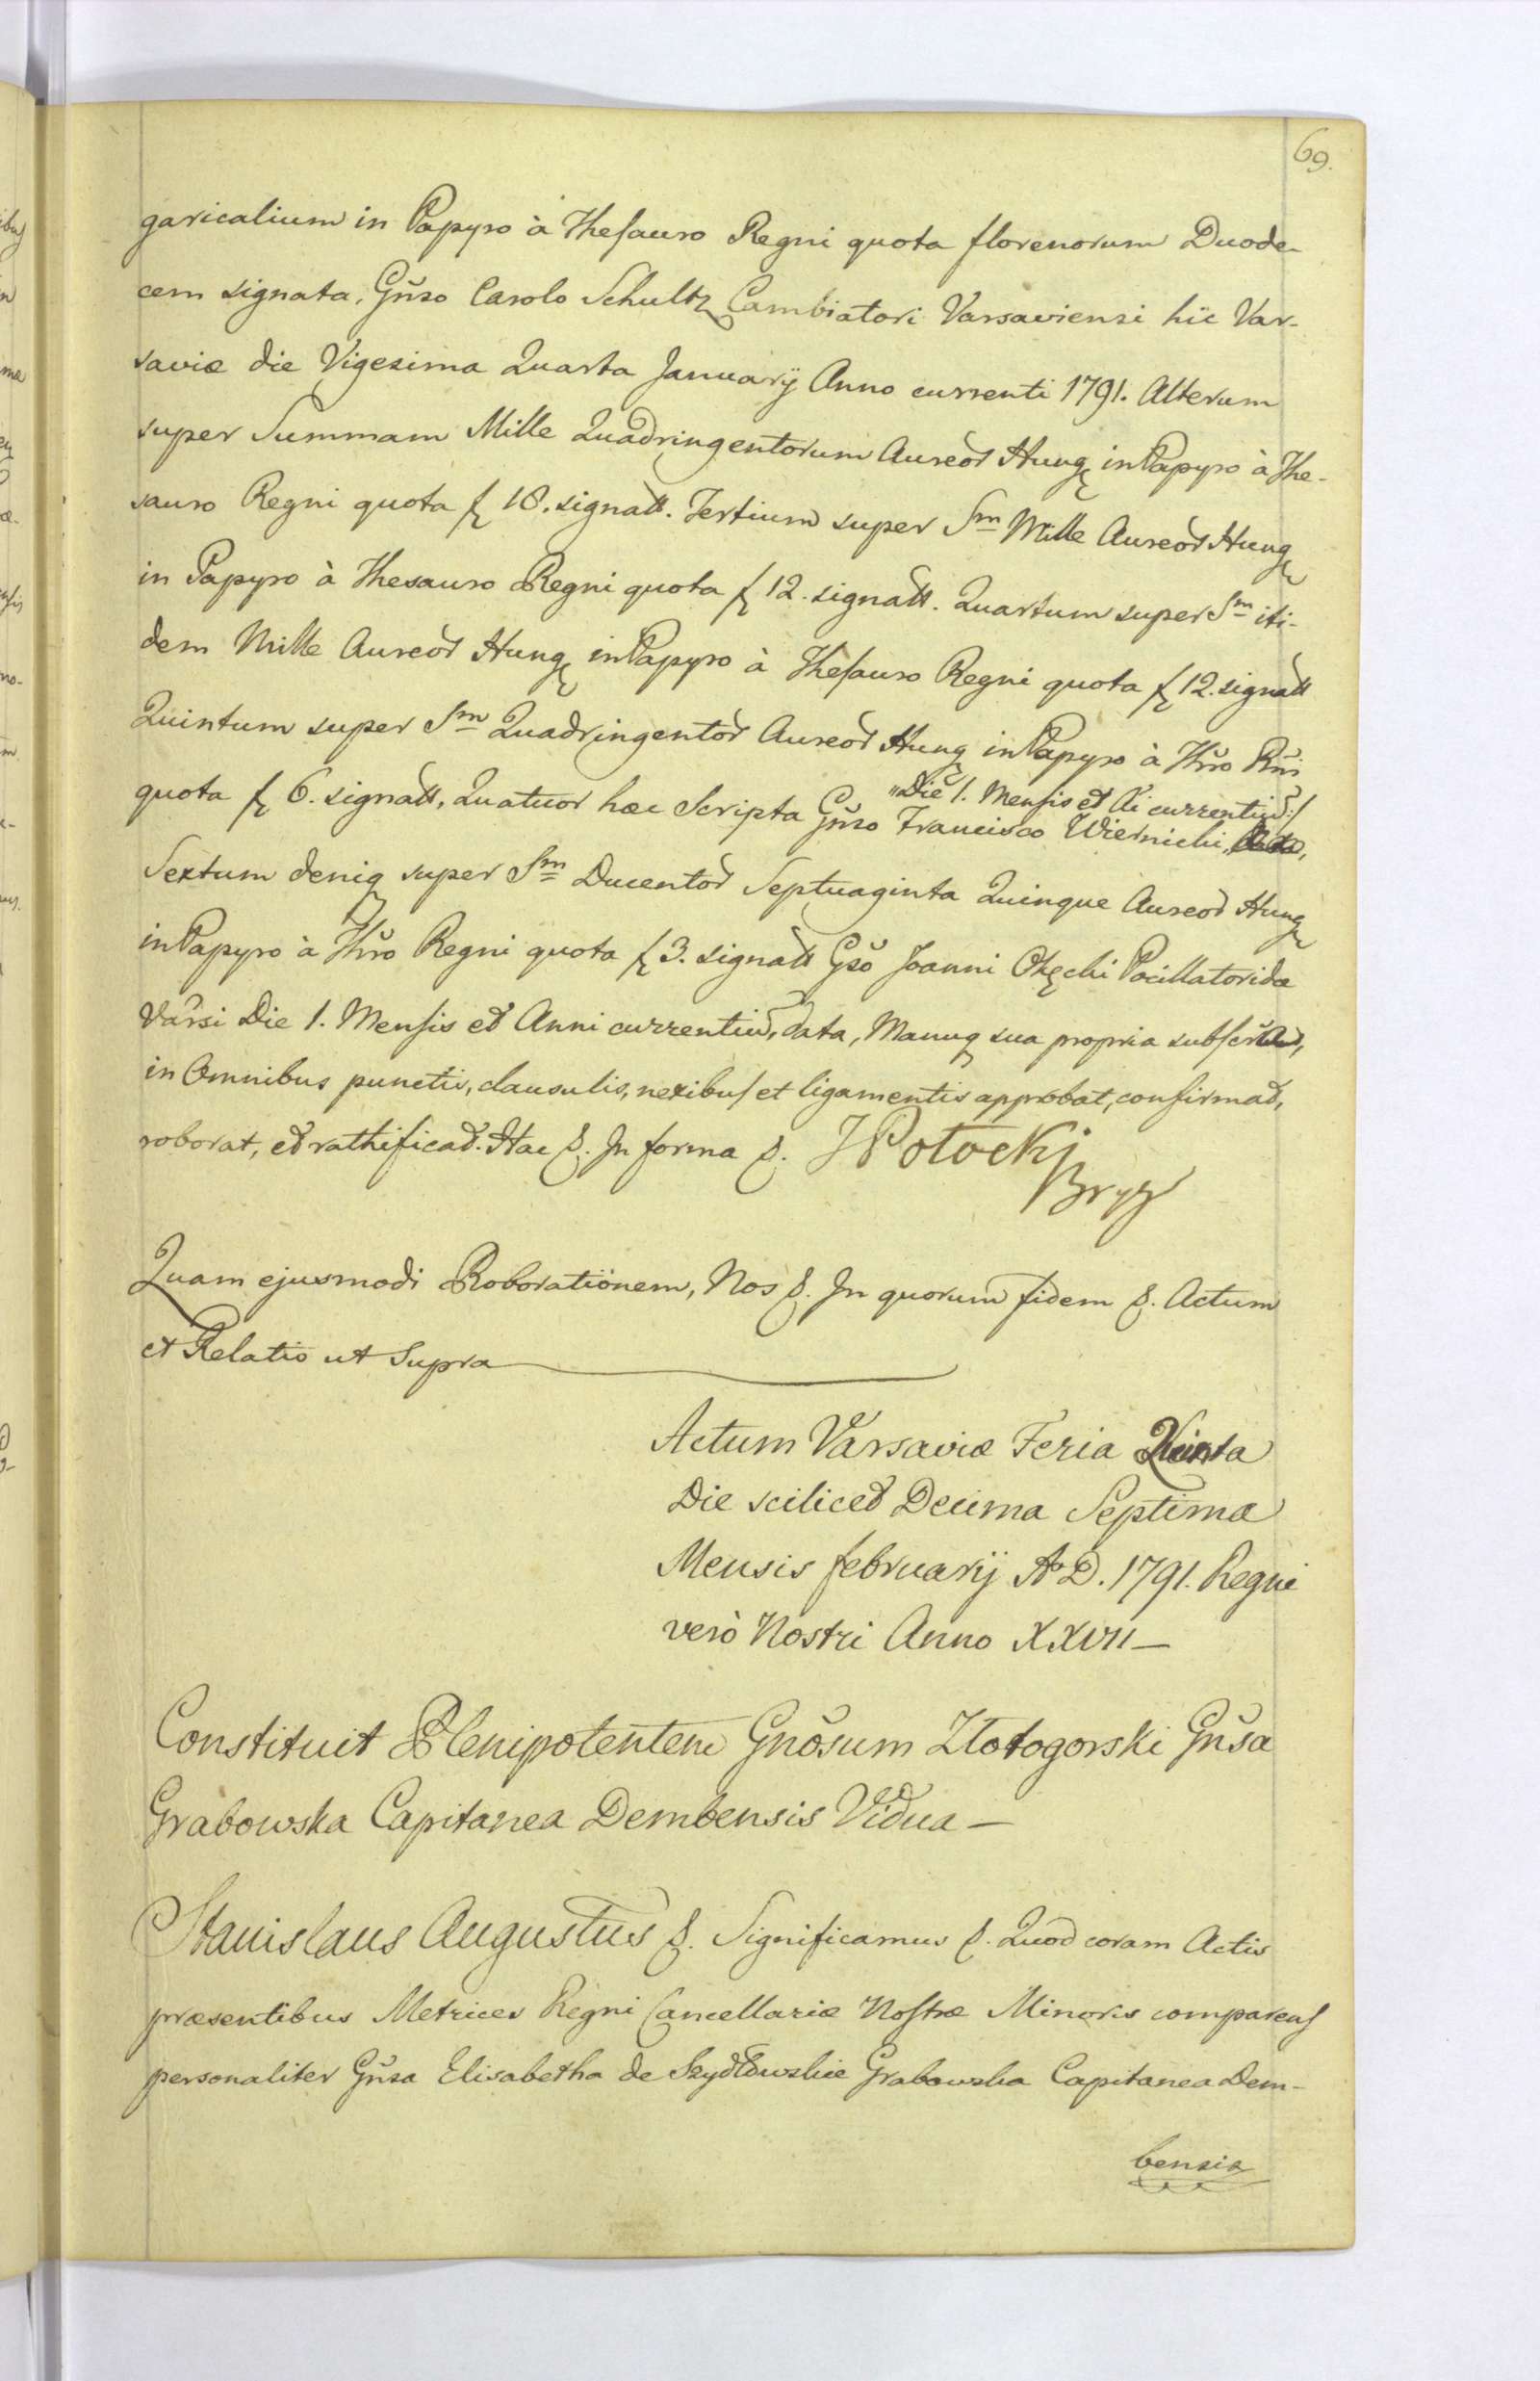 69.
garicalium in Papyro à Thesauro Regni quota florenorum Duode-
cem signata, Gñso Carolo Schultz Cambiatori Varsaviensi hic Var-
saviæ die Vigesima Quarta Januarÿ Anno currenti 1791. Alterum
super Summam Mille Quadringentorum Aureor Hung in Papyro à The-
sauro Regni quota f 18. signatt. Tertium super Sm Mille Aureor Hung
in Papyro à Thesauro Regni quota f 12. signatt. Quartum super Sm iti-
dem Mille Aureor Hung in Papyro à Thesauro Regni quota f 12. signatt
Quintum super Sm Quadringentor Aureor Hung in Papyro à Thro Rni
"Die 1. Mensis et Ai currentium:/
quota f 6. signatt, Quatuor hæc Scripta Gñso Francisco Wiernicki,
Sextum deniq super Sm Ducentor Septuaginta Quinque Aureor Hung
in Papyro à Thro Regni quota f 3. signatt Gso Joanni Okęcki Pocillatoridæ
Varsi Die 1. Mensis et Anni currentium, data, Manuq sua propria
in Omnibus punctis, clausulis, nexibus et ligamentis approbat, confirmat,
roborat, et rathificat. Hac &. In forma &. JPotocki
Quam ejusmodi Roborationem, Nos &. In quorum fidem &. Actum
et Relatio ut Supra
Actum Varsaviæ Feria Quinta
Die scilicet Decima Septima
Mensis februarÿ A.D. 1791. Regni
verò Nostri Anno XXVII—
Constituit Plenipotentem Gnõsum Złotogorski Gñsa
Grabowska Capitanea Dembensis Vidua—
Stanislaus Augustus &. Significamus &. Quod coram Actis
præsentibus Metrices Regni Cancellariæ Nostræ Minoris comparens
personaliter Gñsa Elisabetha de Szydłowskie Grabowska Capitanea Dem-
bensis